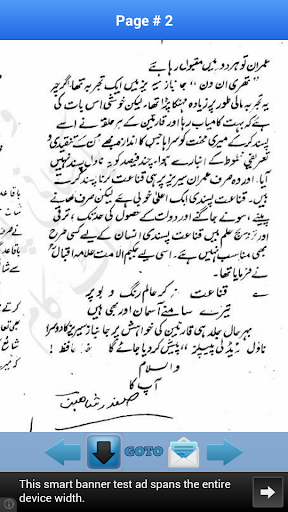 Page # 2
عمران تو ہر دور میں مقبول رہا ہے
"تھری ان ون" جانباز سیریز میں ایک تجربہ تھا۔ اگرچہ
یہ تجربہ مالی طور پر زیادہ مہنگا پڑا تھا۔ لیکن خوشی اس بات کی
ہے کہ بہت کامیاب رہا اور قارئین کے ہر حلقہ نے اسے
پسند کر کے میری محنت کو سراہا جس کا اندازہ مجھے ملنے تنقیدی و
تعریفی خطوط کے انبار سے ہوا۔ چند فیصد کو یہ ناول پسند نہیں
آیا۔ اور وہ صرف عمران سیریز پر ہی قناعت کرنا پسند کرتے
ہیں۔ قناعت پسندی ایک اعلیٰ خوبی ہے لیکن صرف کھانے
پینے، سونے جاگنے اور دولت کے حصول کی حد تک، ترقی
اور علم میں قناعت پسندی انسان کے لیے کسی طرح
بھی مناسب نہیں ہے۔ اسی لیے حکیم الامت علامہ اقبال نے
فرمایا تھا۔
قناعت نہ کر عالم رنگ و بو پر
تیرے سامنے آسمان اور بھی ہیں
بہر حال جلد ہی قارئین کی خواہش پر جانباز سیریز کا دوسرا
ناول پیش کر دیا جائے گا حافظ!
والسلام
آپ کا
صفدر شاہین
GOTO
This smart banner test ad spans the entire
device width.